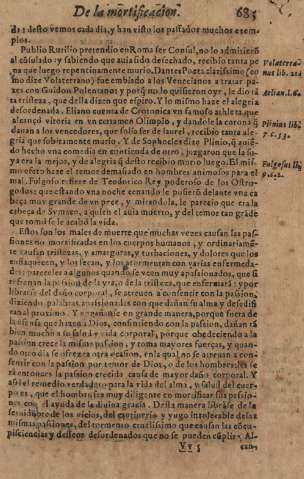 De la mortificacion. 685
dts: desto vemos cada dia, y han visto los passados muchos exem
plos.
Publio Rurilio pretendio en Roma ser Consul, no lo admitierõ
al cõsulado: y sabiendo que auia sido desechado, recibio tanta pe
na que luego repentinamente murio, Dantes Poeta clarissimo (co
mo dize Volaterrano) fue embiado a los Venecianos a tratar pa-
zes con Guidon Polentano: y porq̃ no lo quisieron oyr, le dio tã
ta tristeza, que della dizen que espiro. Y lo mismo haze el alegria
desordenada. Eliano cuenta de Cronica vn famoso athleta que
alcançò vitoria en vn certamen Olimpio, y dandole la corona q̃
dauan a los vencedores, que solia ser de laurel, recibio tanta ale-
gria que subitamente murio. Y de Sophocles dize Plinio, q̃ auiẽ-
do hecho vna comedia en contienda de otro, juzgaron que la su
ya era la mejor, y de alegria q̃ desto recibio murio luego. El mis
mo efeto haze el temor demasiado en hombres animosos para el
mal. Fulgoso refiere de Teodorico Rey poderoso de los Ostro-
godos: que estando vna noche cenando le pusierõ delante vna ca
beça muy grande de vn pece, y mirandola, le parecio que era la
cabeça de Symaco, a quien el auia muerto, y del temor tan grãde
que tomò se le acabò la vida.
Estos son los males de muerte que muchas vezes causan las pas
siones no mortificadas en los cuerpos humanos, y ordinariamẽ
te causan tristezas, y amarguras, y turbaciones, y dolores que los
enflaquecen, y los secan, y los atormentan con varias enfermeda-
des: pareceles a algunos quando se veen muy apassionados, que si
refrenan la passion de la yra, o de la tristeza, que enfermarã: y por
librarse del daño corporal, se atreuen a consentir con la passion,
diziendo palabras apassionadas con que dañan su alma y desedifi
can al proximo. Y engañanse en grande manera, porque fuera de
la ofensa que hazen a Dios, consintiendo con la passion, dañan tã
bien mucho a su salud y vida corporal, porque obedeciendo a la
passion crece la misma passion, y toma mayores fuerças, y quan-
do otro dia se ofrezca otra ocasion, en la qual no se atreuan a con-
sentir con la passion por temor de Dios, o de los hombres, les se
rà entonces la passion crecida causa de mayor daño corporal. Y
assi el remedio verdadero para la vida del alma, y salud del cuer-
po es, que el hombre sea muy diligente en mortificar sus passio-
nes con el ayuda de la diuina gracia. Desta manera librase de la
seruidumbre de los vicios, del cautiuerio y yugo intolerable de las
mismas passiones, del tormento cruelissimo que causan las cõcu-
piscencias y desseos desordenados que no se pueden cũplir, Al-
Vv 3
Volaterra
nus lib. 21.
Aelian. l. 9.
Plinius lib.
7. c. 53.
Fulgosus li.
9. c. 2.